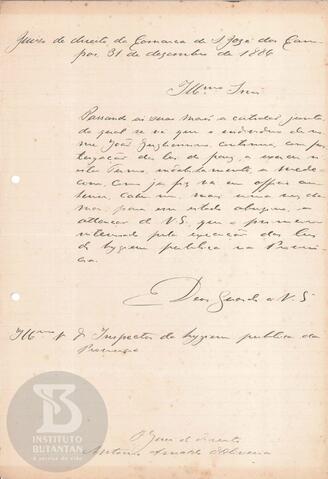 Juizo de direito da Comarca de S José dos Cam-
pos, 31 de dezembro de 1886
Illmo Snr
Passando ás suas mãos a
do qual se vê que o individuo de no-
me João continua, com
das leis do paiz, a exercer n'
este Termo, a medi-
cina, como já fiz ver em officio an-
terior, mais uma vez cha-
mar, para este abuso, a
attenção de V. S., que é o primeiro
interessado pela execução das leis
de hygiene publica na Provin-
cia.
Deus Guarde a V. S.
Illmo Sr Dr Inspector de hygiene publica da
Provincia
O Juiz de direito
Antonio d'Oliveira
INSTITUTO
BUTANTAN
A serviço da vida